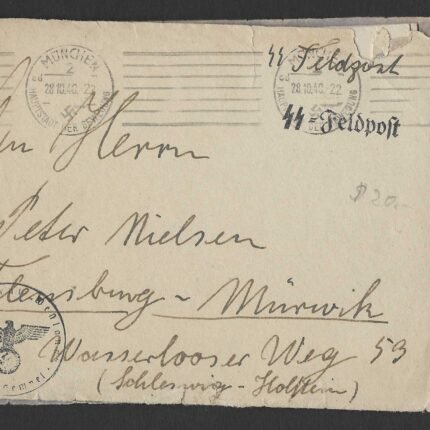 MÜNCHEN
2
28.10.40.22
HAUPTSTADT DER BEWEGUNG
SS Feldpost
28.10.40.22
SS Feldpost
$20.-
Herrn
Peter Nielsen
Flensburg - Mürwik
Wasserlooser Weg 53
(Schleswig-Holstein)